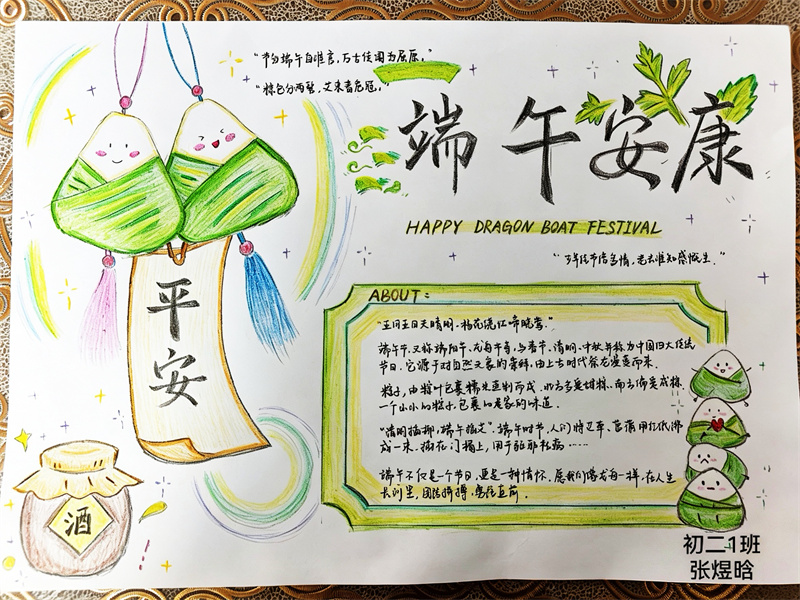 “节分端午自谁言,万古传闻为屈原。”
“粽包分两髻,艾束著危冠。”
端午安康
HAPPY DRAGON BOAT FESTIVAL
“少年佳节倍多情,老去谁知感慨生。”
平安
酒
ABOUT:
“五月五日天晴明,杨花绕江啼晓莺。”
端午节,又称端阳节、龙舟节等,与春节、清明、中秋并称为中国四大传统
节日。它源于对自然天象的崇拜,由上古时代祭龙演变而来。
粽子,由粽叶包裹糯米蒸制而成。北方多是甜粽,南方偏爱咸粽,
一个小小的粽子,包裹的是家的味道。
“清明插柳,端午插艾”。端午时节,人们将艾草、菖蒲用红纸绑
成一束,插在门楣上,用于驱邪祛病……
端午不仅是一个节日,更是一种情怀。愿我们像龙舟一样,在人生
长河里,团结拼搏,勇往直前。
初二1班
张煜晗